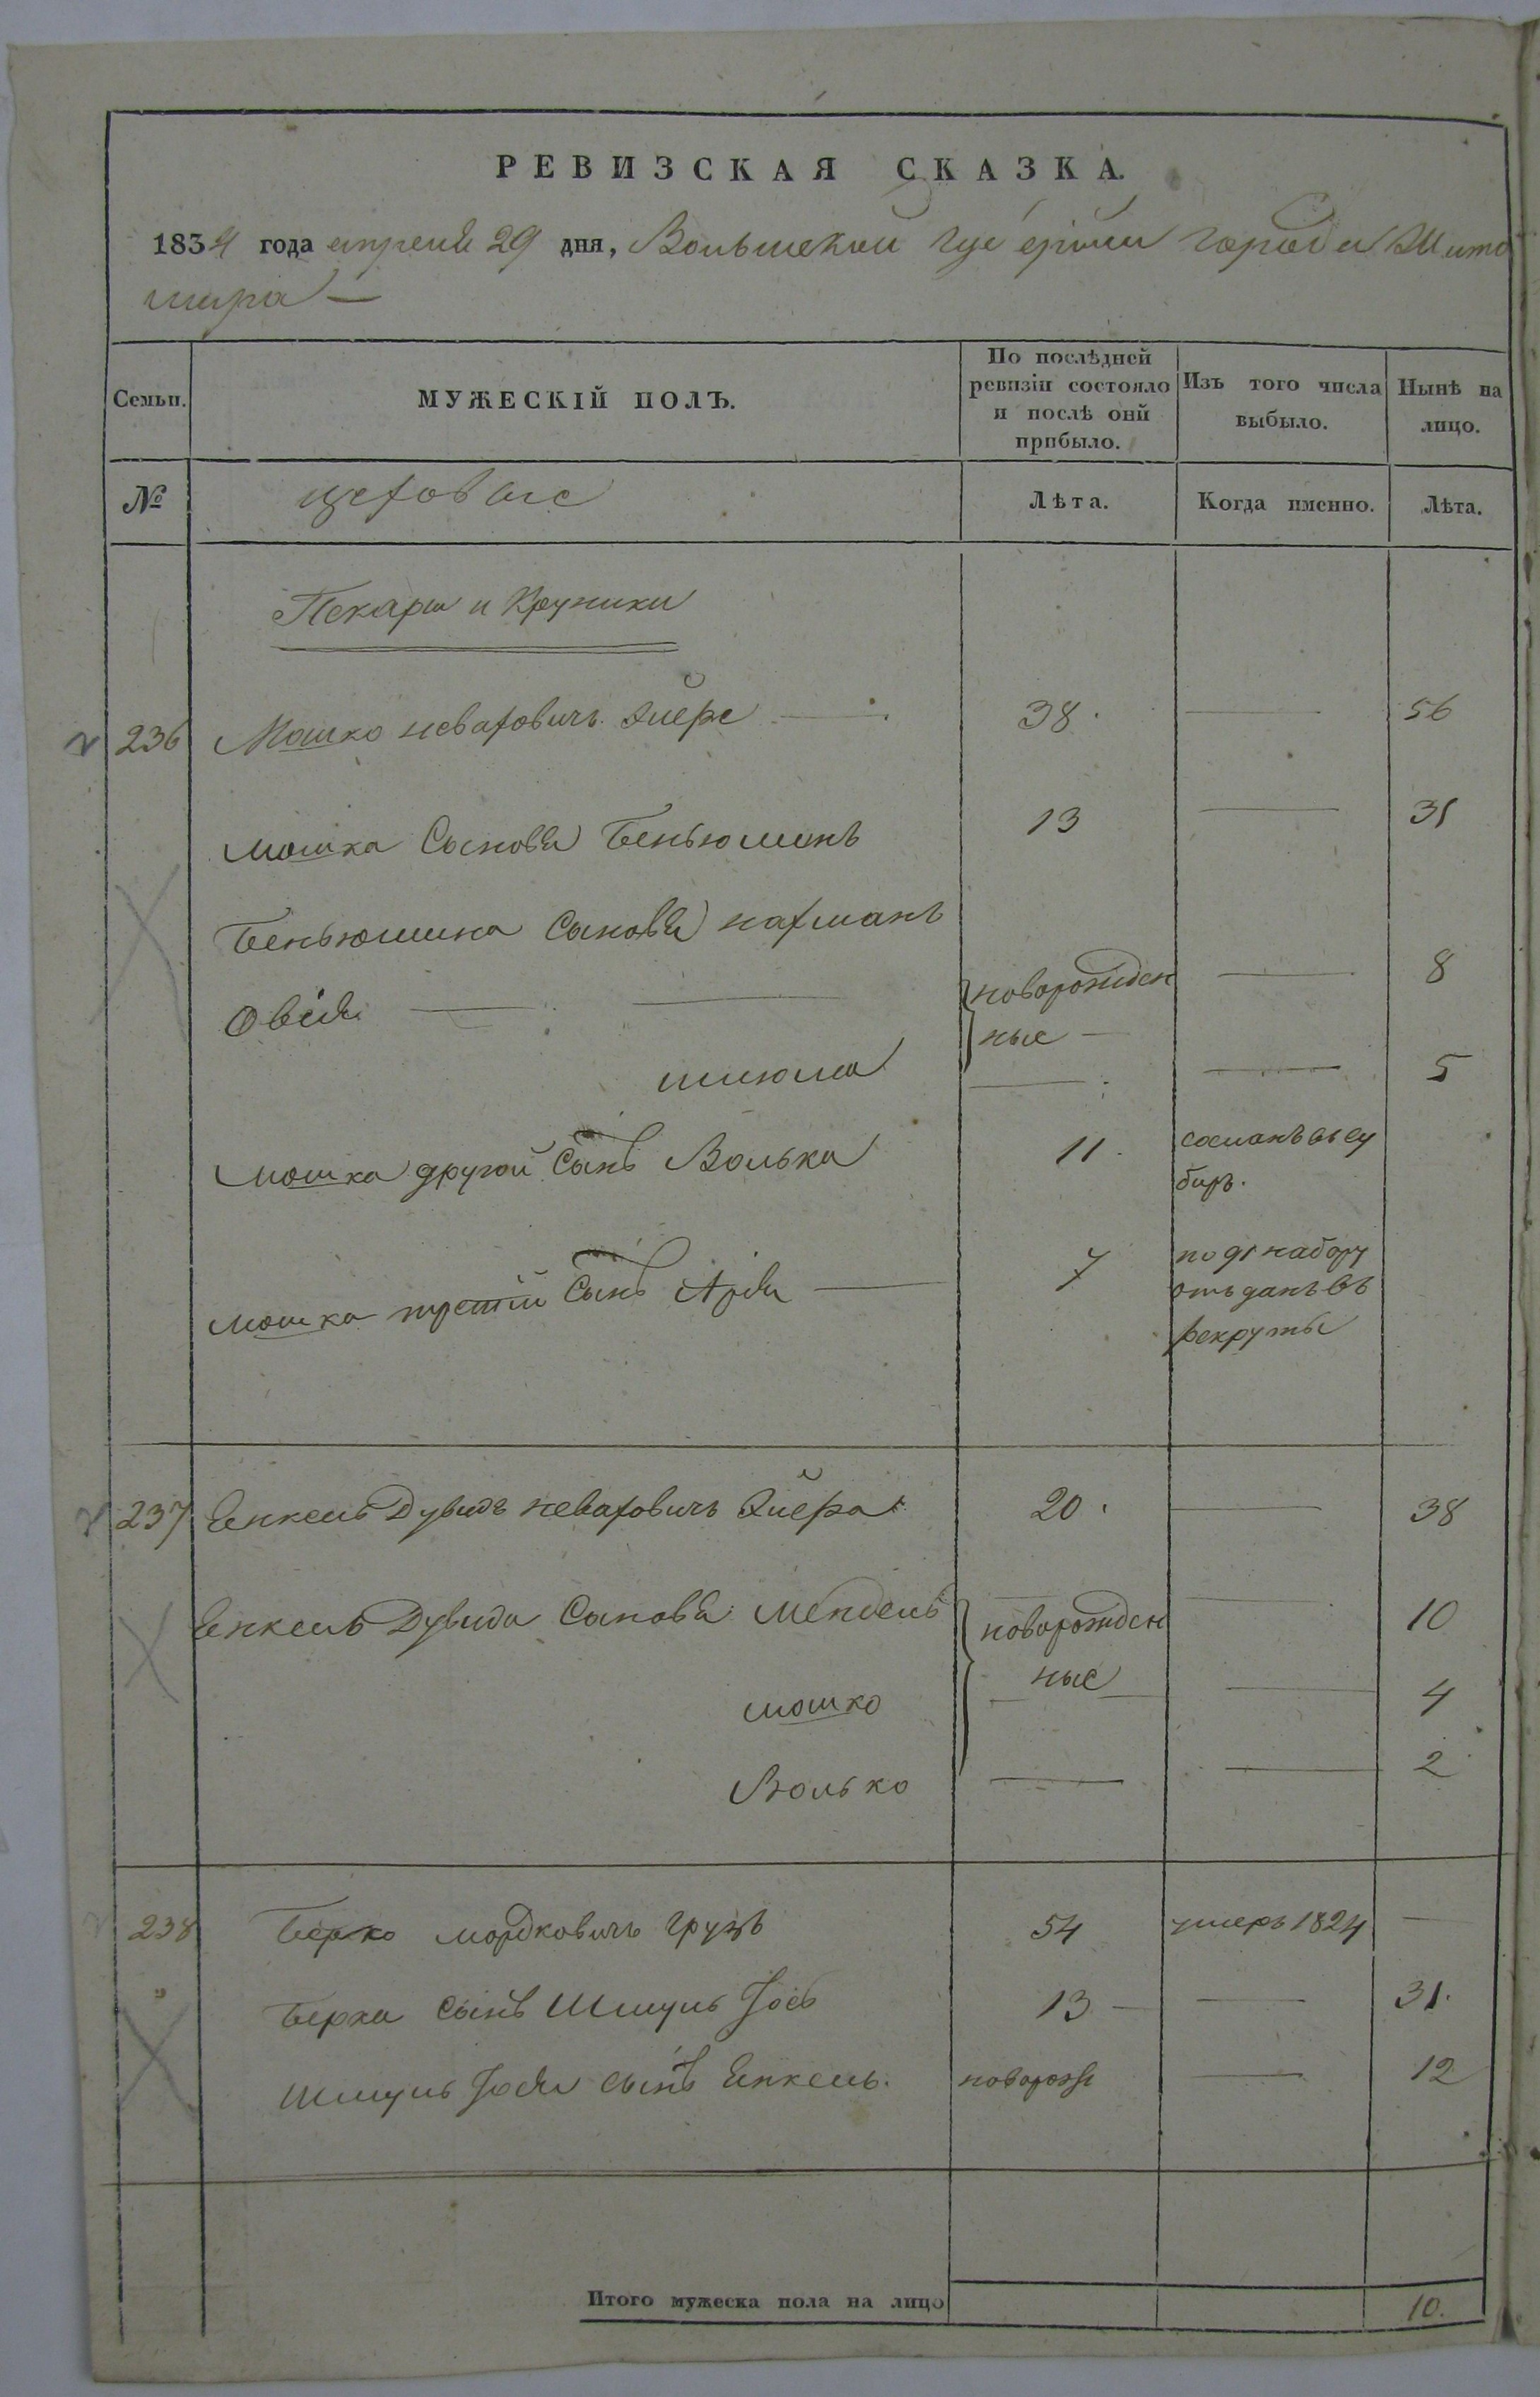 РЕВИЗСКАЯ СКАЗКА.
1834 года апреля 29 дня, Волынской губерніи города Жито
мира —
Семьи. МУЖЕСКІЙ ПОЛЪ. По послѣдней ревизіи состояло и послѣ оной прибыло. Изъ того числа выбыло. Нынѣ на лицо.
№ цеховые Лѣта. Когда именно. Лѣта.
Пекари и Крупники
236 Мошко невахович 38. — 56
мошка Сыновья Беньюминъ 13 — 31
Беньюмина Сыновья нахманъ
Овсій новорожден — 8
ные —
шлюма — — 5
мошка другой Сынъ Волька 11. сосланъ въ су
биръ.
мошка третій Сынъ Арія — 7 по 91 набору
отъданъ въ
рекруты
237 Енкель Дувидъ невахович 20. — 38
Енкель Дувида Сыновья Мендель новорожден — 10
мошко ные — 4
Волько — — 2
238 Берко мордковичъ грузъ 54 умеръ 1824 —
Берка сынъ Шмуль Іось 13 — — 31.
Шмуль Іося сынъ Енкель. новорож — 12
Итого мужеска пола на лицо 10.